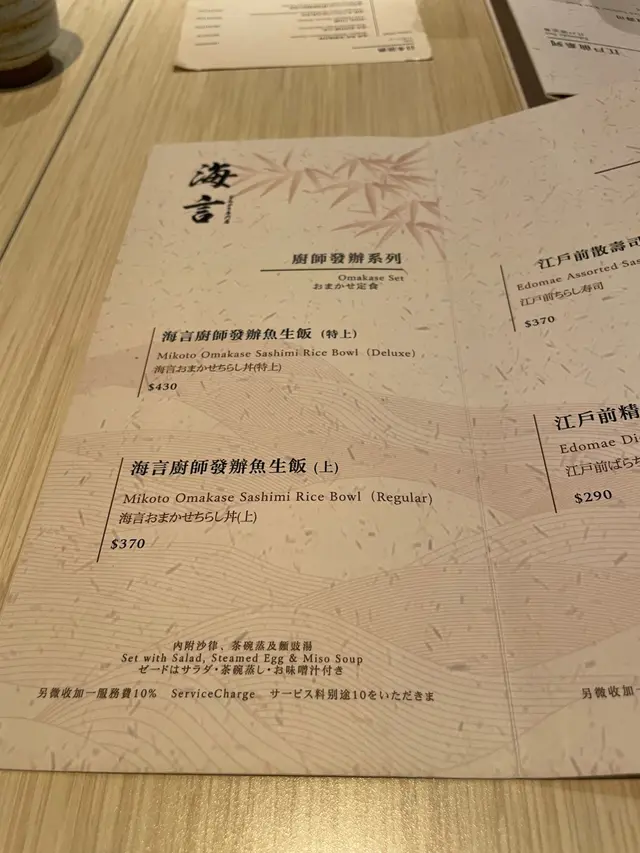 海言
廚師發辦系列
Omakase Set
おまかせ定食
海言廚師發辦魚生飯 (特上)
Mikoto Omakase Sashimi Rice Bowl (Deluxe)
海言おまかせちらし丼(特上)
$430
海言廚師發辦魚生飯 (上)
Mikoto Omakase Sashimi Rice Bowl (Regular)
海言おまかせちらし丼(上)
$370
內附沙律、茶碗蒸及麵豉湯
Set with Salad, Steamed Egg & Miso Soup
ゼードはサラダ・茶碗蒸し・お味噌汁付き
另微收加一服務費10% ServiceCharge サービス料别途10をいただきま
江戶前散壽司
Edomae Assorted Sas
江戸前ちらし寿司
$370
江戶前精
Edomae Di
江戸前ばらち
$290
另微收加一
江戸前系列